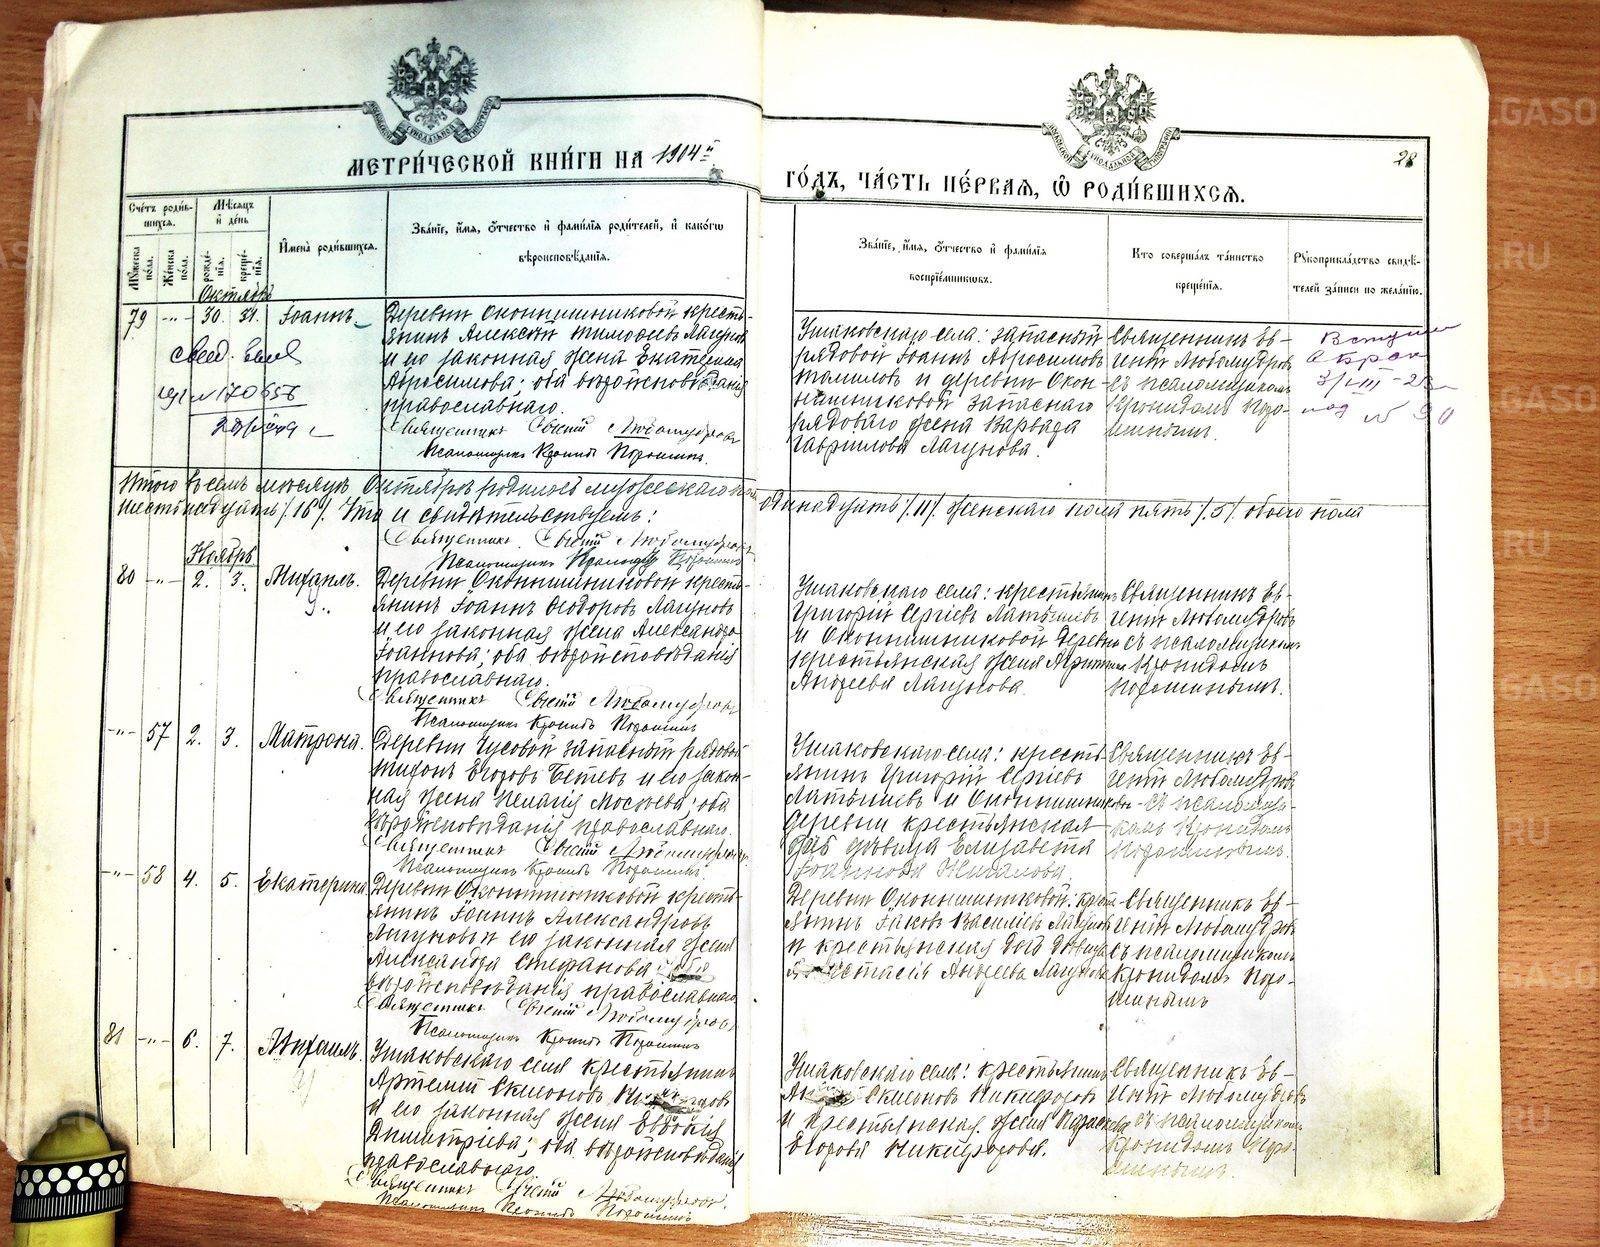 МЕТРИЧЕСКОЙ КНИГИ НА 1904 й
ГОДЪ, ЧАСТЬ ПЕРВАЯ, Ѡ РОДИВШИХСЯ.
28
Счетъ родив-
шихся.
Мѣсяцъ
и день
Мужеска пола.
Женска пола.
рожде-
нія.
креще-
нія.
Имена родившихся.
Званіе, имя, отчество и фамилія родителей, и какогѡ
вѣроисповѣданія.
Званіе, имя, отчество и фамилія
воспріемниковъ.
Кто совершалъ таинство
крещенія.
Рукоприкладство свидѣ-
телей записи по желанію.
Октябрь
79 -"- 30. 31. Іоаннъ.
Деревни Оконишниковой кресть-
янинъ Алексій Тимофеевъ Лагунов
и его законная жена Екатерина
Абросимова; оба вѣроисповѣданія
православнаго.
Священникъ Евгеній Любомудровъ
Псаломщикъ Кронидъ Порошинъ.
Ушаковскаго села: запасный
рядовой Іоаннъ Абросимовъ
Томиловъ и деревни Окон-
ишниковой запаснаго
рядоваго жена Варвара
Гаврилова Лагунова.
Священникъ Ев-
геній Любомудровъ
съ псаломщикомъ
Кронидомъ Поро-
шинымъ.
Вступил
в брак
№ 90
Итого въ семъ мѣсяцѣ Октябрѣ родилось мужескаго пола
одинадцать /11/ женскаго пола пять /5/ обоего пола
шестьнадцать /16/. Что и свидѣтельствуемъ:
Священникъ Евгеній Любомудровъ
Псаломщикъ Кронидъ Порошинъ
Ноябрь
80 -"- 2. 3. Михаилъ.
Деревни Оконишниковой кресть-
янинъ Іоаннъ Ѳеодоровъ Лагуновъ
и его законная жена Александра
Іоаннова; оба вѣроисповѣданія
православнаго.
Священникъ Евгеній Любомудровъ
Псаломщикъ Кронидъ Порошинъ
Ушаковскаго села: крестьянинъ
Григорій Сергіевъ Латышевъ
и Оконишниковой деревни
крестьянская жена
Андреева Лагунова.
Священникъ Ев-
геній Любомудровъ
съ псаломщикомъ
Кронидомъ
Порошинымъ.
-"- 57 2. 3. Матрона.
Деревни Гусевой запасный рядовой
Тихонъ Егоровъ Бетевъ и его закон-
ная жена Пелагія Мосеева; оба
вѣроисповѣданія православнаго.
Священникъ Евгеній Любомудровъ
Псаломщикъ Кронидъ Порошинъ.
Ушаковскаго села: кресть-
янинъ Григорій Сергіевъ
Латышевъ и Оконишниковой
деревни крестьянская
дочь дѣвица Елизавета
Іоаннова
Священникъ Ев-
геній Любомудровъ
съ псаломщи-
комъ Кронидомъ
Порошинымъ.
-"- 58 4. 5. Екатерина.
Деревни Оконишниковой кресть-
янинъ Іоаннъ Александровъ
Лагуновъ и его законная жена
Александра Стефанова; оба
вѣроисповѣданія православнаго.
Священникъ Евгеній Любомудровъ
Псаломщикъ Кронидъ Порошинъ
Деревни Оконишниковой: крест-
янинъ Іаковъ Василіевъ Лагунов
и крестьянская дочь дѣвица
Анастасія Андреева Лагунова
Священникъ Ев-
геній Любомудровъ
съ псаломщикомъ
Кронидомъ Поро-
шинымъ
81 -"- 6. 7. Михаилъ.
Ушаковскаго села крестьянинъ
Артемій Симеоновъ Никифоровъ
и его законная жена Евдокія
Димитріева; оба вѣроисповѣданія
православнаго.
Священникъ Евгеній Любомудровъ.
Псаломщикъ Кронидъ Порошинъ
Ушаковскаго села: крестьянинъ
Симеоновъ Никифоровъ
и крестьянская жена Параскева
Егорова Никифорова.
Священникъ Ев-
геній Любомудровъ
съ псаломщикомъ
Кронидомъ Поро-
шинымъ.